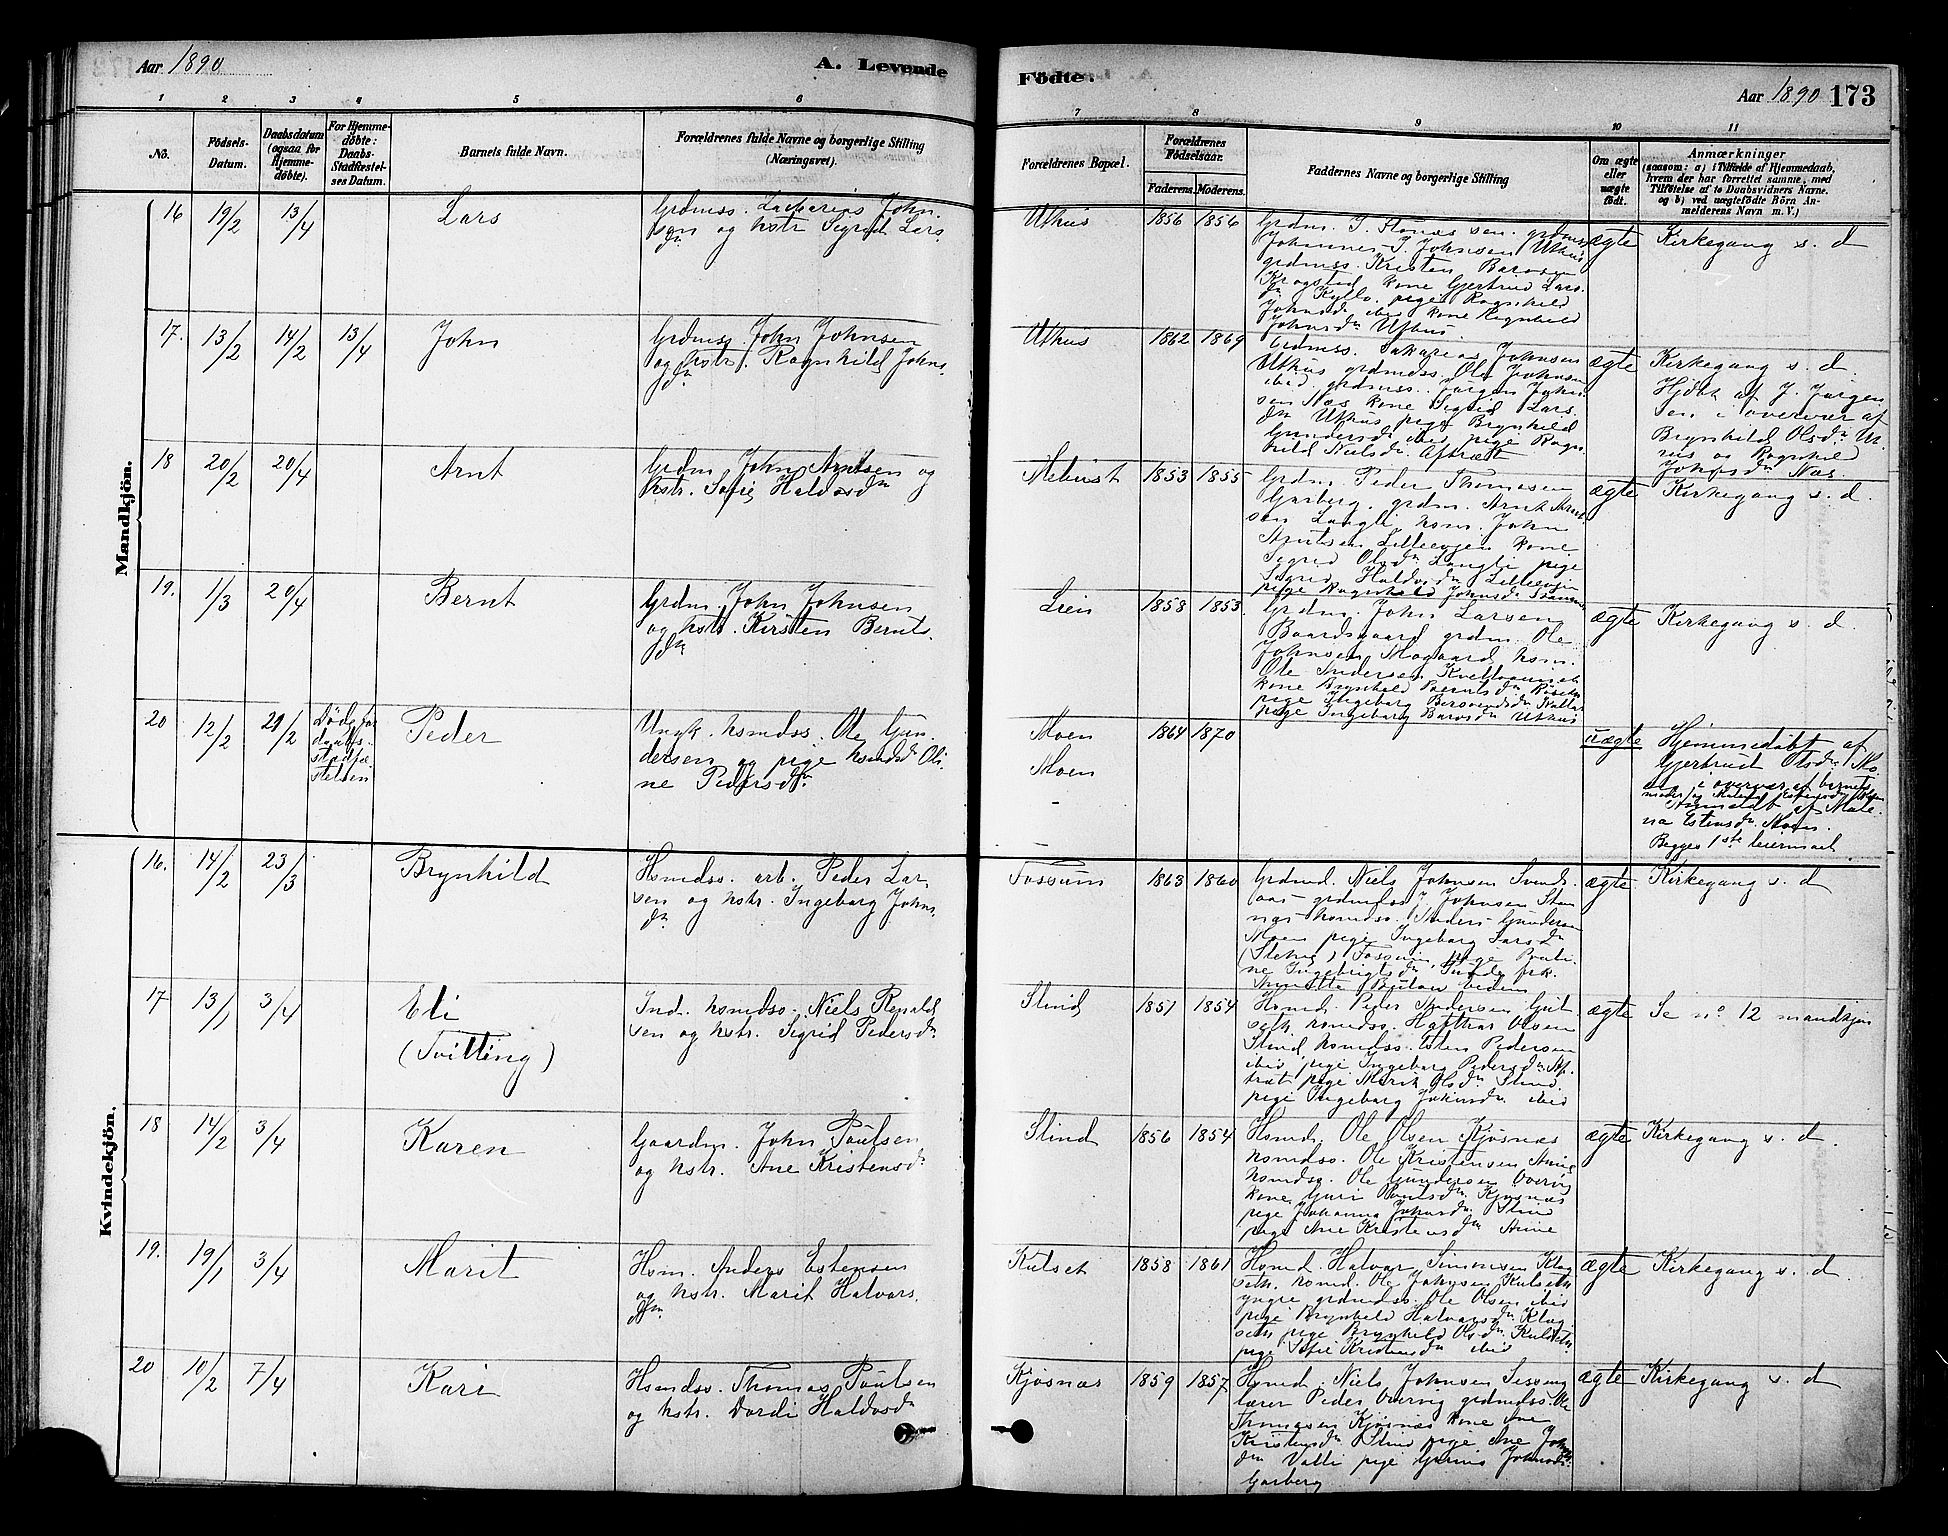 Aar 1890
A. Levende
Födte.
Aar 1890 173
1 2 3 4 5 6 7 8 9 10 11
No.
Födsels-
Datum.
Daabsdatum
(ogsaa for
Hjemme-
döbte).
For Hjemme-
döbte:
Daabs-
Stadfæstel-
ses Datum.
Barnets fulde Navn.
Forældrenes fulde Navne og borgerlige Stilling
(Næringsvei).
Forældrenes Bopæl.
Forældrenes
Födselsaar.
Faderens. Moderens.
Faddernes Navne og borgerlige Stilling
Om ægte
eller
uægte
födt.
Anmærkninger
(saasom: a) i Tilfælde af Hjemmedaab,
hvem der har forrettet samme, med
Tilföielse af to Daabsvidners Navne.
og b) ved uægtefödte Börn An-
melderens Navn m. V.)
Mandkjön.
16 19/2 13/4
Lars
Grdmss. Zacharias John-
sen og hstr Sigrid Lars
dn
Uthus
1856 1856
Johannes J. Johnsen Uthus
grdmss. Kristen
Krogstad kone Gjertrud Lars
dn Kyllo. pige Ragnhild
Johnsdn ibid kone Ragnhild
Johnsdn Uthus
ægte
Kirkegang s. d
17. 13/2 14/2 13/4
John
Grdmss. John Johnsen
og hstr. Ragnhild Johns
dn
Uthus
1862 1869
Grdmss. Sakarias Johnsen
Uthus grdmdss. Ole Johnsen
ibid, grdmss. Jörgen John
sen Næs kone Sigrid Lars
dn Uthus pige Brynhild
Gundersdn ibid, pige Ragn
hild
ægte
Kirkegang s. d.
Hjdbt af J. Jörgen
sen i overvær af
Brynhild Olsdn
og Ragnhild
Johnsdn Næs.
18 20/2 20/4
Arnt
Grdm. John Arntsen og
hstr. Sofie Haldosdn
Mebust
1853 1855
Grdm. Peder Thomesen
Garberg, grdm. Arnt Arnt
sen Langli, hsm. John
Arntsen Lilleevjen kone
Sigrid Olsdn Langli pige
Sigrid Haldosdn Lilleevjen
pige Ragnhild Johnsdn
ægte
Kirkegang s. d.
19. 1/3 20/4
Bernt
Grdm. John Johnsen
og hstr. Kirsten Bernts
dn
Lien
1858 1853.
Grdm. John Larsen
Baardsgaard grdm. Ole
Johnsen Mogaard, hsm.
Ole Andersen
kone Brynhild Berntsdn
pige Ingeborg
pige Ingeborg Uthus
ægte
Kirkegang s. d.
20 12/2 21/2
Död för
daabs-
stadfæ-
stelsen
Peder
Ungk. hsmdss. Ole Gun
dersen og pige hsmdsd Oli
ne Pedersdn
Moen
Moen
1864 1870
uægte
Hjemmedöbt af
Gjertrud Olsdn Mo
en i overvær af barnets
moder og
Anmeldt af Male
na Estensdn Moen.
Begges 1ste leiermaal
Kvindekjön.
16. 14/2 23/3
Brynhild
Hsmdss. arb. Peder Lar
sen og hstr. Ingeborg Johns
dn
Fossum
1863 1860
Grdmd. Niels Johnsen Svends
aas grdmdss J. Johnsen Ste
næs hsmdss. Anders Gundersen
Moen pige Ingeborg Larsdn
Fossum, pige
ne Ingebrigtsdn
ægte
Kirkegang s. d
17 13/1 3/4
Eli
(Tvilling)
Ind. hsmdss. Niels Renald
sen og hstr. Sigrid Pedersdn
Slind
1851 1854
Hsmd. Peder Andersen
seth hsmdss. Halvar Olsen
Slind hsmdss. Esten Pedersen
ibid pige Ingeborg Pedersdn Af
træt pige Marit Olsdn Slind
pige Ingeborg ibid
ægte
Se no 12 mandkjön
18 14/2 3/4
Karen
Gaardm. John Poulsen
og hstr. Ane Kristensdn
Slind
1856 1854
Hsmd. Ole Olsen Kjösnæs
hsmdss. Ole Kristensen
hsmdss. Ole Gundersen
kone Guri Poulsdn Kjösnæs
pige Johanna Johnsdn Slind
pige Ane Kristensdn
ægte
Kirkegang s. d.
19. 19/1 3/4
Marit
Hsm. Anders Estensen
og hstr. Marit Halvars
dn
Kulset
1858 1861
Hsmd Halvar Simonsen Kleg
seth. hsmd. Ole Johnsen Kulseth
yngre grdmdss. Ole Olsen ibid
pige Brynhild Halvarsdn Kleg
seth, pige Brynhild Olsdn Kulseth
pige Sofie Kristensdn ibid
ægte
Kirkegang s. d.
20 10/2 7/4
Kari
Hsmdss. Thomas Poulsen
og hstr. Dordi Haldosdn
Kjösnæs
1859 1857
Hsmd. Niels Johnsen Sesseng
lærer Peder grdmdss. Ole
Thomasen Kjösnæs kone Ane
Kristensdn Slind pige Ane John
dn Valli pige Johnsdn
Garberg
ægte
Kirkegang s. d